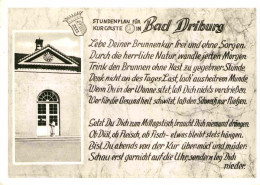 STUNDENPLAN FÜR
KURGÄSTE IN Bad Driburg
Lebe Deiner Brunnenkur frei und ohne Sorgen.
Durch die herrliche Natur, wandle jeden Morgen.
Trink den Brunnen ohne Hast zu gegebner Stunde
Denk nicht an des Tages Last, lach aus heitrem Munde,
Wenn Du in der Wanne sitzt, laß Dich nichts verdrießen.
Wer für die Gesundheit schwitzt, laß den Schweiß nur fließen.
Gehst Du Dich zum Mittagstisch, braucht Dich niemand drängen.
Ob Obst, ob Fleisch, ob Fisch - etwas bleibt stets hängen.
Bist Du abends von der Kur übermüd und müder
Schau erst garnicht auf die Uhr, sondern leg Dich
nieder.